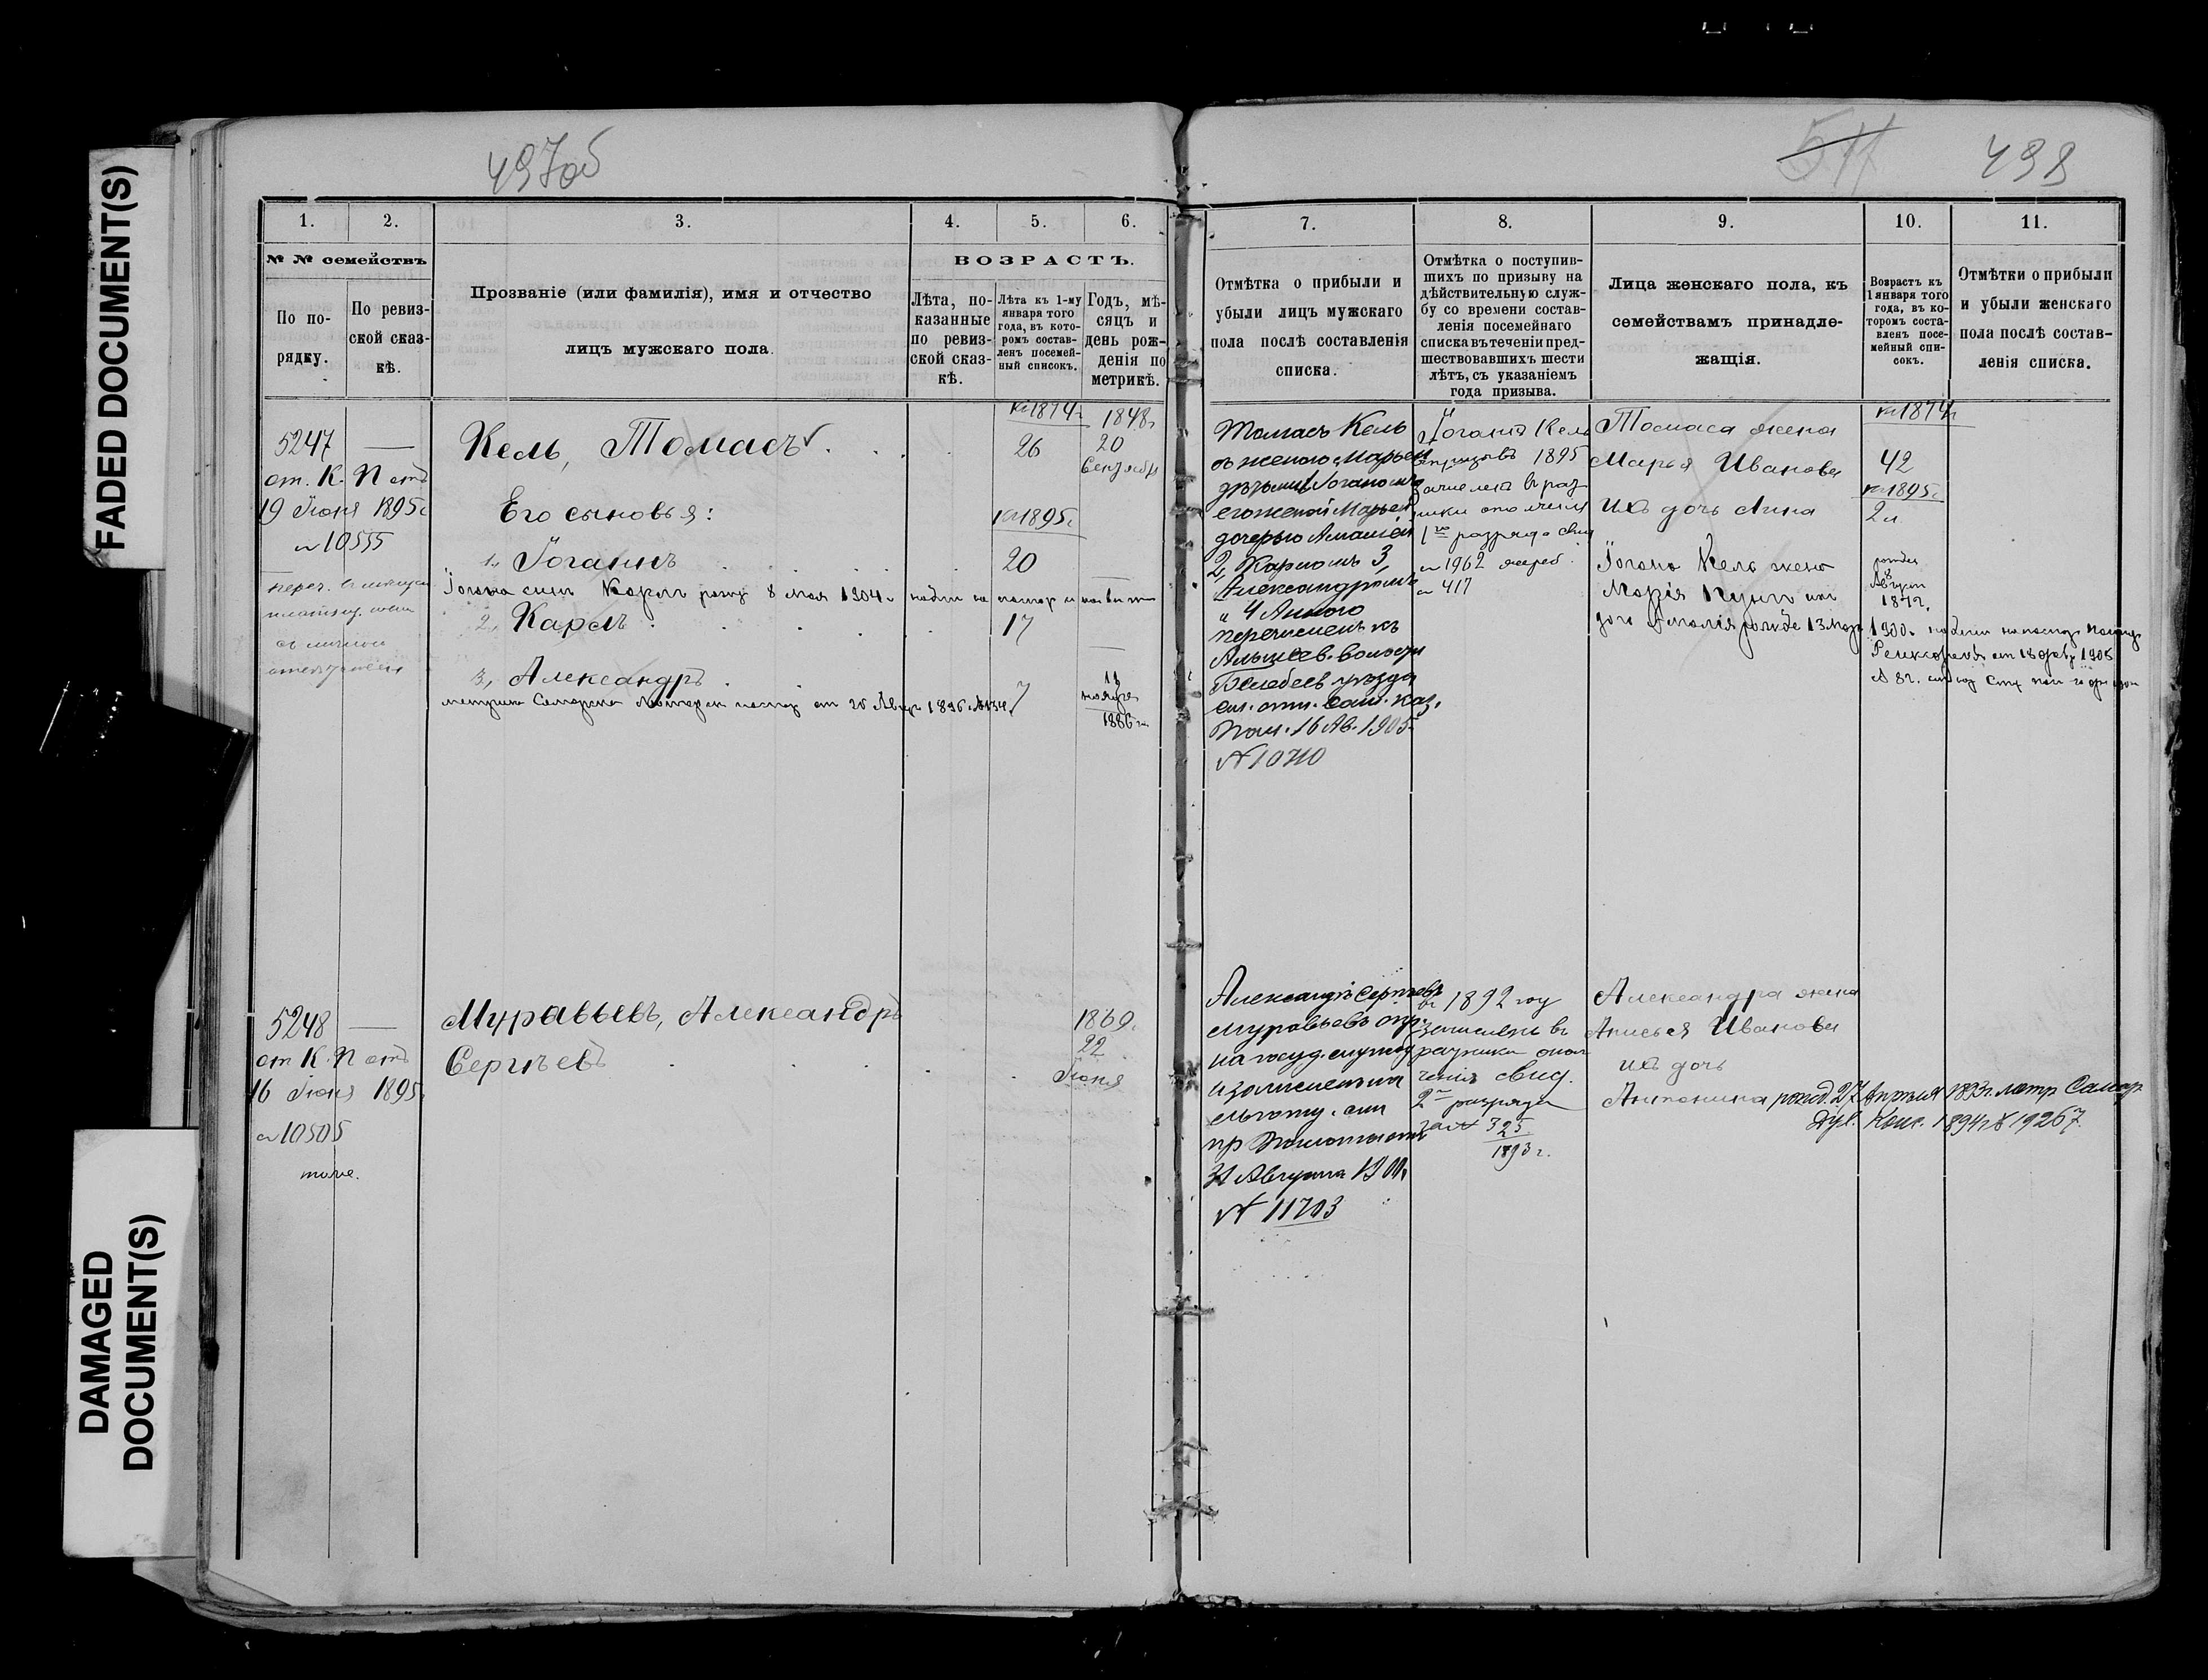 FADED DOCUMENT(S)
DAMAGED
DOCUMENT(S)
497об
1.
2.
3.
4.
5.
6.
№ № семействъ
По по-
рядку.
По ревиз-
ской сказ-
кѣ.
Прозваніе (или фамилія), имя и отчество
лицъ мужскаго пола.
ВОЗРАСТЪ.
Лѣта, по-
казанные
по ревиз-
ской сказ-
кѣ.
Лѣта къ 1-му
января того
года, въ кото-
ромъ состав-
ленъ посемей-
ный списокъ.
Годъ, мѣ-
сяцъ и
день рож-
денія по
метрикѣ.
5247
от. К. П. отъ
19 Іюня 1895г.
№ 10555
Кель, Томасъ
на 1874г.
26
1848г.
20
Сентября
Его сыновья:
на 1895г.
1, Іоганнъ
20
Іогана сынъ Карлъ 8 мая 1904г.
2, Карлъ
17
3, Александръ
7
ноября
1886г.
5248
от К. П. отъ
16 Іюня 1895г.
№ 10505
тоже.
Муравьевъ, Александръ
Сергѣевъ
1869г.
22
Іюня
511
498
7.
8.
9.
10.
11.
Отмѣтка о прибыли и
убыли лицъ мужскаго
пола послѣ составленія
списка.
Отмѣтка о поступив-
шихъ по призыву на
дѣйствительную служ-
бу со времени состав-
ленія посемейнаго
списка въ теченіи пред-
шествовавшихъ шести
лѣтъ, съ указаніемъ
года призыва.
Лица женскаго пола, къ
семействамъ принадле-
жащія.
Возрастъ къ
1 января того
года, въ ко-
торомъ соста-
вленъ посе-
мейный спи-
сокъ.
Отмѣтки о прибыли
и убыли женскаго
пола послѣ состав-
ленія списка.
Томасъ Кель
съ женою Марьей
дѣтьми Іоганомъ
его женой Марьей
дочерью Амаліей
2, Карломъ 3,
Александромъ
" 4 Анною
перечисленъ къ
Альшеев. волости
Белебеев. уѣзда
Пал. 16 Ав. 1905г.
№ 10710
Іоганъ Кель
призывъ 1895
зачисленъ в рат
ники ополченія
1го разряда свид
№ 1962 жереб.
№ 417
Томаса жена
Марья Иванова
ихъ дочь Анна
Іогана Кель жена
Марія
дочь Амалія рожде 13
на 1874г.
42
на 1895г.
2 л.
8
Август
1872г.
1900г.
1905
Александръ Сергѣевъ
Муравьевъ опр.
на госуд. службу
и зачисленъ на
31 Августа 1900г.
№ 11703
въ 1892 году
зачисленъ въ
ратники опол
ченія свид.
2го разряда
за № 325
1893г.
Александра жена
Анисья Иванова
ихъ дочь
Антонина рожд. 27 Апрѣля 1893г. метр Самар
Дух. Конс. 1894г. № 19267.